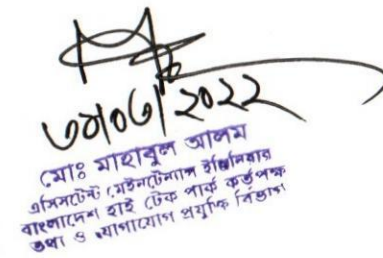 ২০২২
মোঃ মাহাবুল আলম
এসিসটেন্ট মেইনটেন্যান্স ইঞ্জিনিয়ার
বাংলাদেশ হাই টেক পার্ক কর্তৃপক্ষ
তথ্য ও যোগাযোগ প্রযুক্তি বিভাগ